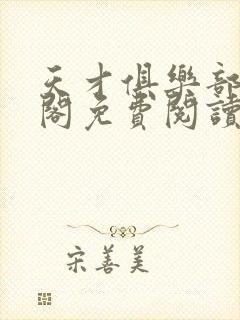 天才俱樂部
閣免費閱讀
宋善美